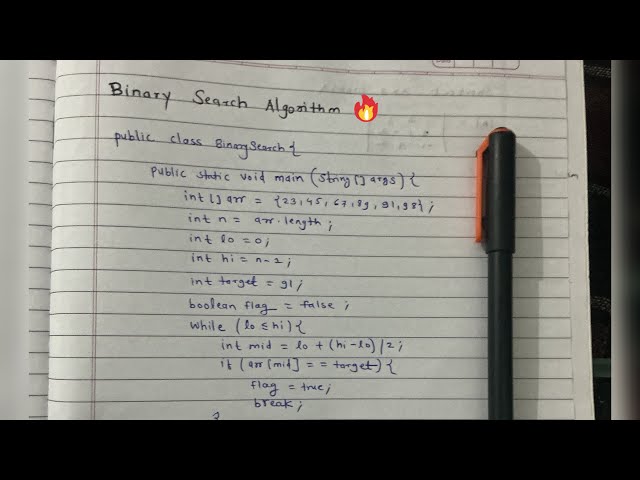 Binary Search Algorithm 🔥
public class BinarySearch {
public static void main (String [] args) {
int [] arr = {23, 45, 67, 89, 91, 98} ;
int n = arr.length ;
int lo = 0 ;
int hi = n-2 ;
int target = 91 ;
boolean flag = false ;
while (lo ≤ hi) {
int mid = lo + (hi-lo) / 2 ;
if (arr [mid] = = target) {
flag = true ;
break ;
}